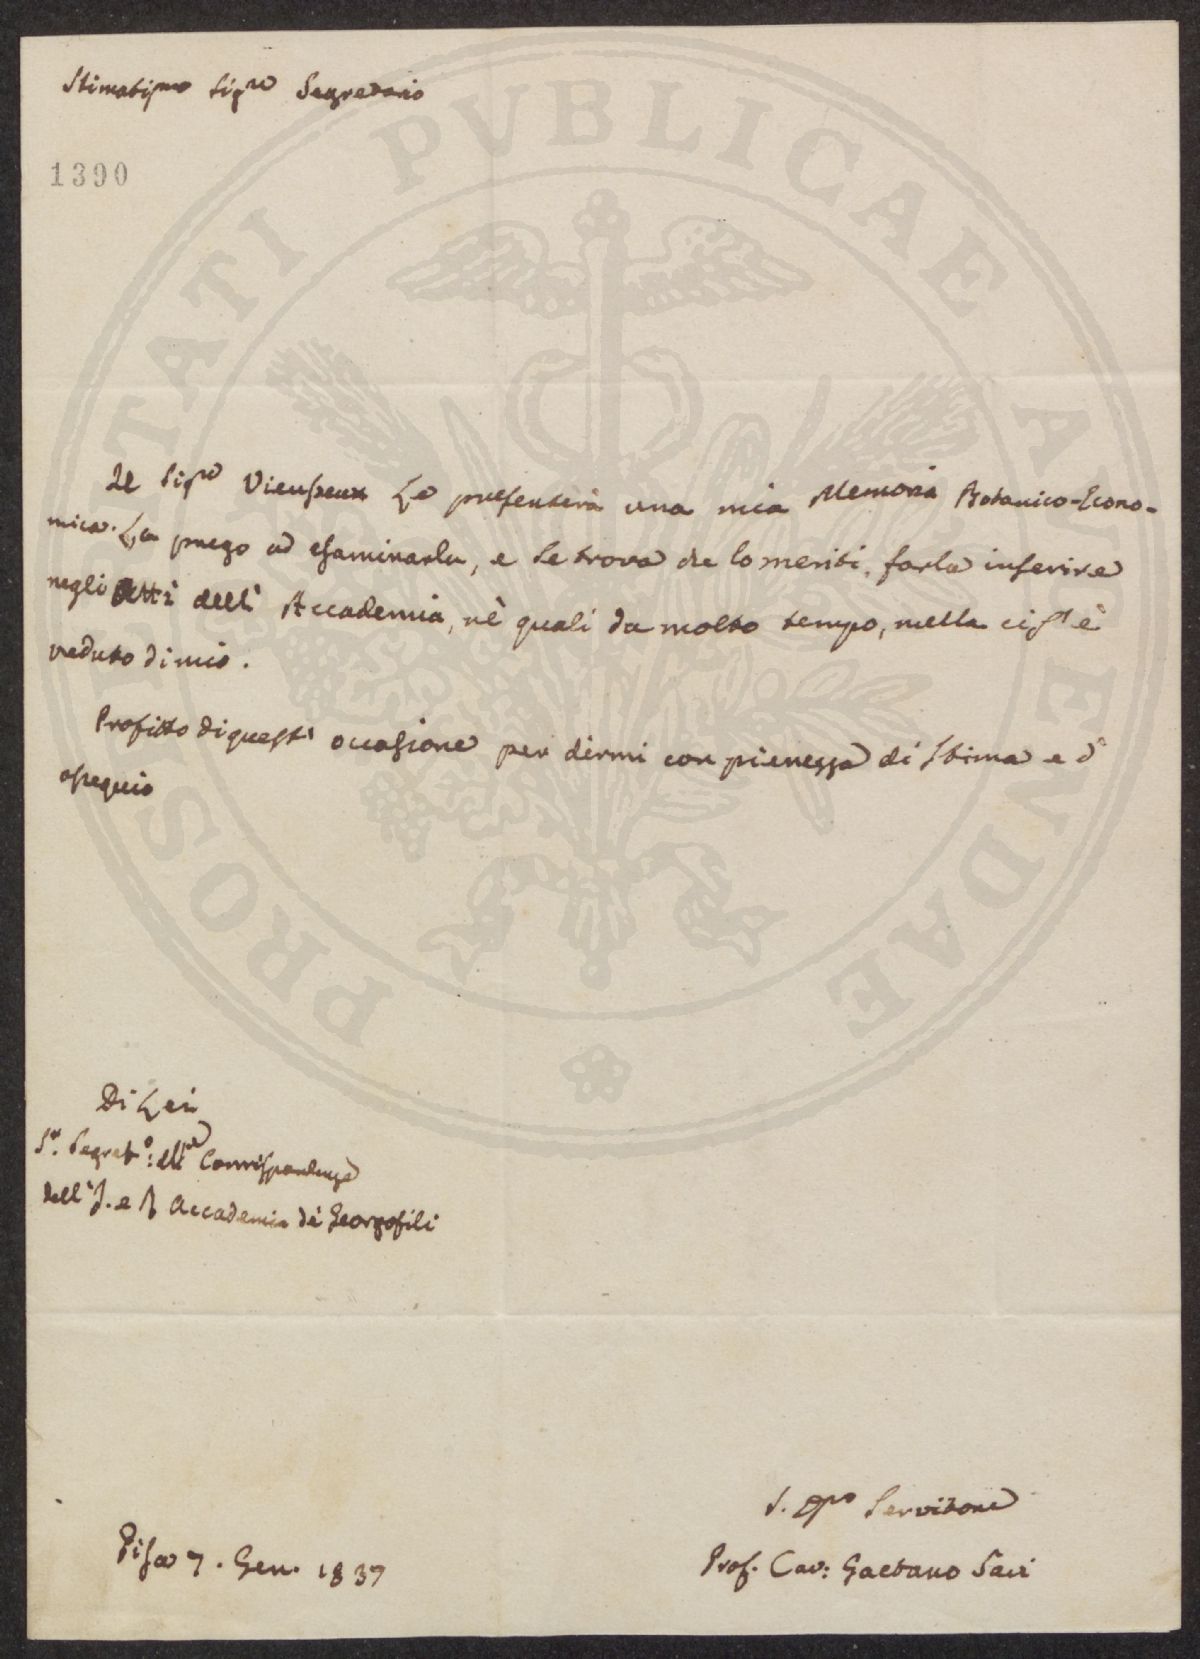 Stimatismo Sigre Segretario
1390
Il Sigre Vieusseux Le presenterà una mia Memoria Botanico-Econo-
mica. La prego ad esaminarla, e se trova che lo meriti, farla inserire
negli Atti dell' Accademia, nè quali da molto tempo, nulla ci s' è
veduto di mio.
Profitto di quest' occasione per dirmi con pienezza di stima e d'
ossequio
Di Lei
Sr. Segreto: dlla Corrispondenza
dell' I. e R Accademia dè Georgofili
S. Servitore
Pisa 7. Gen. 1837
Prof. Cav: Gaetano Savi
PROSPERITATI PUBLICAE AUGENDAE